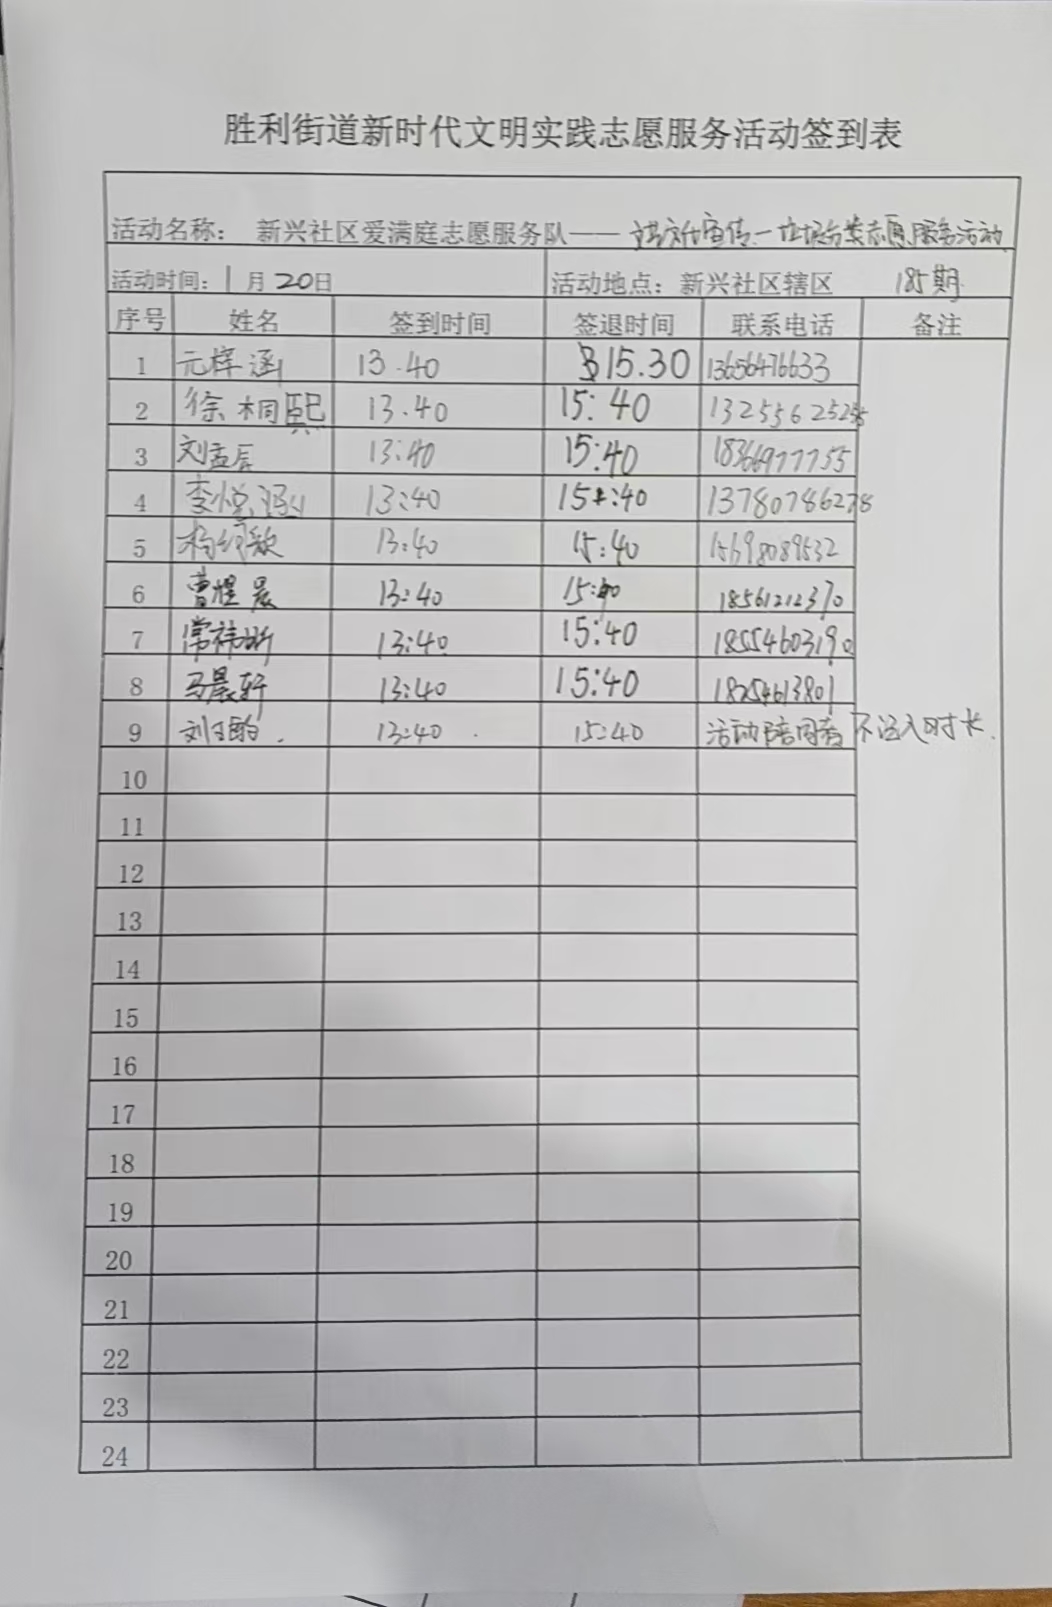 胜利街道新时代文明实践志愿服务活动签到表
活动名称： 新兴社区爱满庭志愿服务队—— 宣传一垃圾分类志愿服务活动
活动时间：1月20日 活动地点：新兴社区辖区 185期
序号 姓名 签到时间 签退时间 联系电话 备注
1 元梓涵 13.40 15.30 13656476633
2 徐桐熙 13.40 15:40
3 刘孟辰 13:40 15:40 18366977755
4 李悦 13:40 15:40 13780786278
5 杨 13:40 15:40 15698089532
6 曹煜晨 13:40 15:40 18561212370
7 常祎昕 13:40 15:40 18554603190
8 马晨轩 13:40 15:40 18254613801
9 刘 13:40 15:40 活动陪同者 不记入时长.
10
11
12
13
14
15
16
17
18
19
20
21
22
23
24